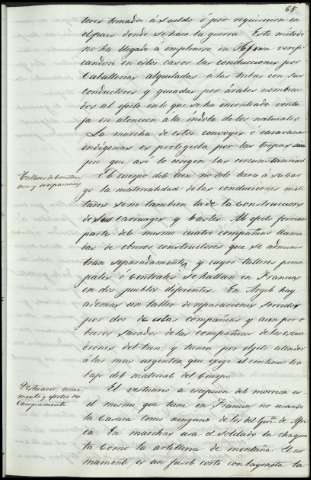 68.
teros tomados á sueldo ó por requisicion en
el pais donde se hace la guerra. Este método
no ha llegado á emplearse en Argel verifi-
candose en estos casos las conducciones por
Caballerias alquiladas á las tribus con sus
conductores y guiadas por árabes nombra-
dos al efecto en lo que se ha encontrado venta-
ja en atencion á la indole de los naturales
La marcha de estos convoyes ó caravanas
indígenas es protegida por las tropas siem-
pre que asi lo exigen las circunstancias
Talleres de construc-
cion y reparaciones
El cuerpo del tren no solo tiene á su car-
go la materialidad de las conducciones mili-
tares sino tambien la de la construccion
de sus carruages y bastes. Al efecto forman
parte del mismo cuatro compañias llama-
das de obreros constructores que se adminis-
tran separadamente y cuyos talleres princi-
pales ó Centrales se hallan en Francia
en dos puntos diferentes. En Argel hay
ademas un taller de reparaciones servido
por dos de estas compañias y aun por o-
breros sacados de las compañias de los escua-
drones del tren y tienen por objeto atender
á las mas urgentes que exige el continuo tra-
bajo del material del Cuerpo.
Vestuario, arma-
mento y efectos de
Campamento
El vestuario á escepcion del morrion es
el mismo que tiene en Francia no usando
la Casaca como ninguno de los del Egto. de Afri-
ca. En marchas usa el soldado la chaque-
ta como la artilleria de montaña. El ar-
mamento es un fusil corto con bayoneta la